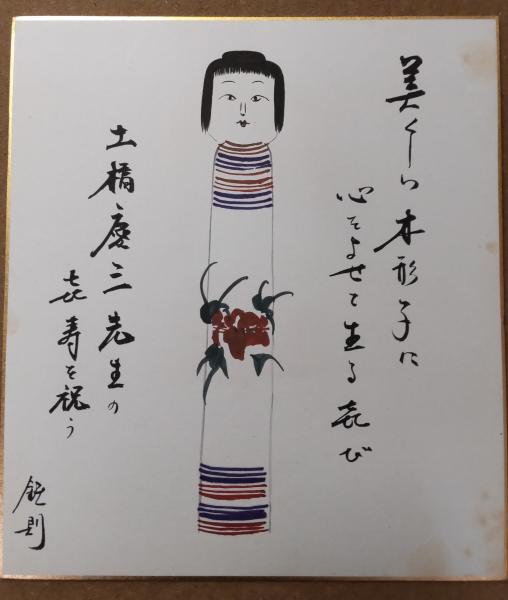 美くしい木形子に
心をよせて生る㐂び
土橋慶三先生の
㐂寿を祝う
鉦則